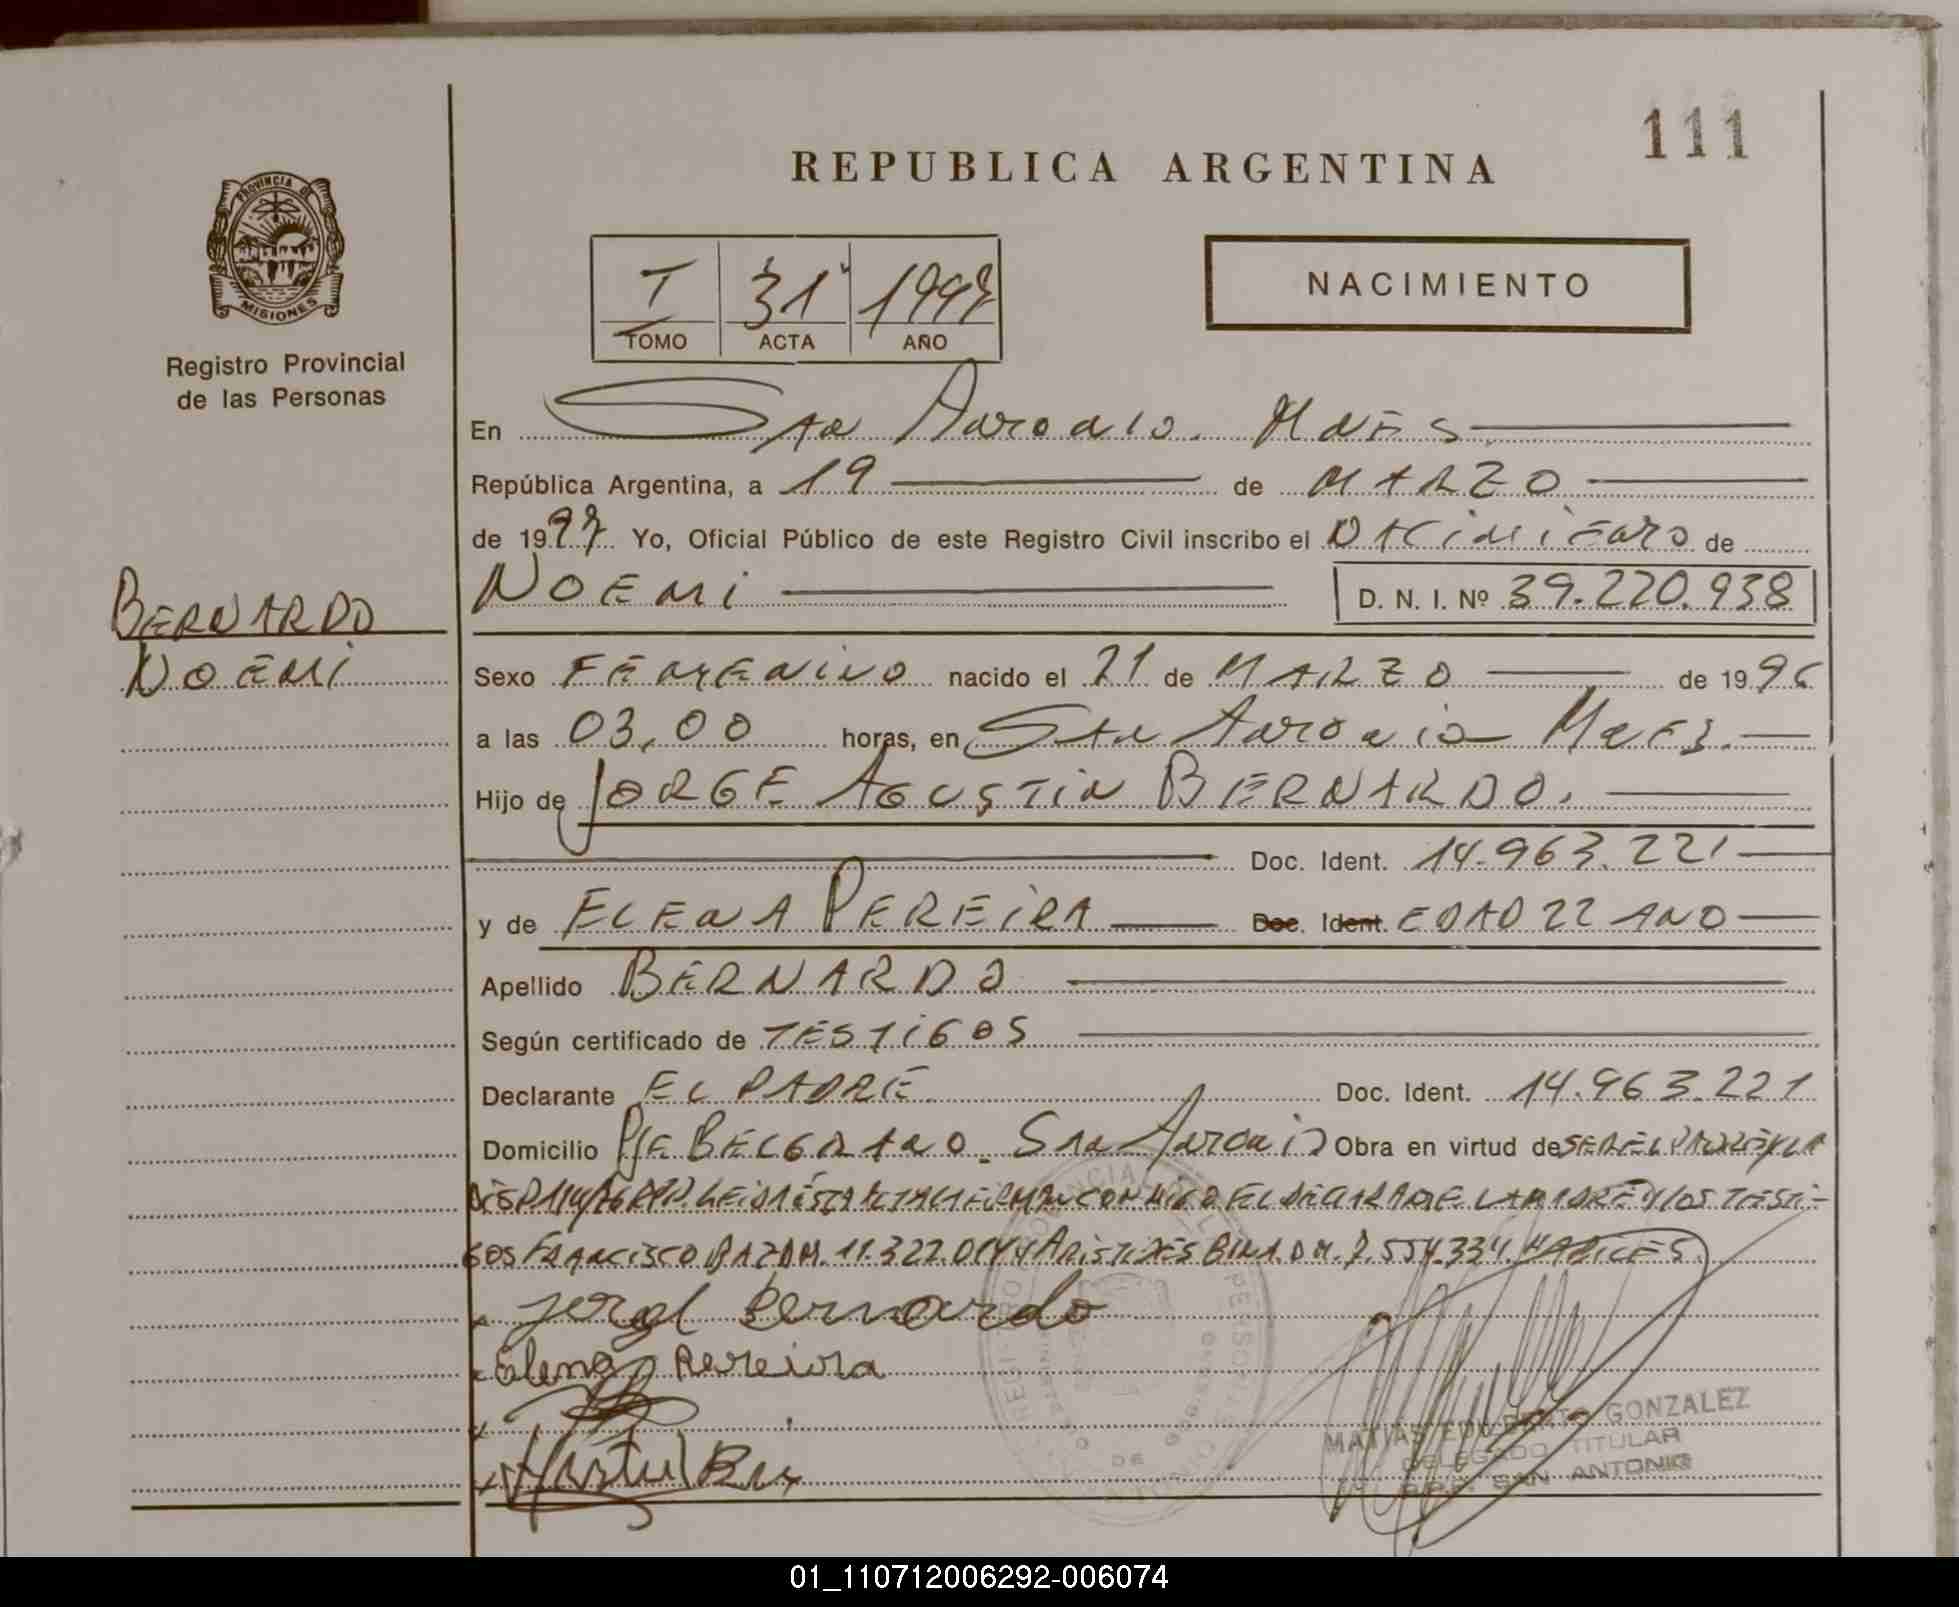 111
REPUBLICA ARGENTINA
PROVINCIA DE
MISIONES
Registro Provincial
de las Personas
T 31 1997
TOMO ACTA AÑO
NACIMIENTO
En San Antonio. Mnes
República Argentina, a 19 de MARZO
de 1997 Yo, Oficial Público de este Registro Civil inscribo el NACIMIENTO de
BERNARDO
NOEMI
NOEMI D. N. I. Nº 39.220.938
Sexo FEMENINO nacido el 21 de MARZO de 1996
a las 03,00 horas, en San Antonio Mnes.
Hijo de JORGE AGUSTIN BERNARDO.
Doc. Ident. 14.963.221
y de ELENA PEREIRA Doc. Ident. EDAD 22 AÑO
Apellido BERNARDO
Según certificado de TESTIGOS
Declarante EL PADRE Doc. Ident. 14.963.221
Domicilio Pje BELGRANO. San Antonio Obra en virtud de SER EL PADRE Y LA
DISP. LEIDA ESTA ACTA LA FIRMAN CONMIGO EL DECLARANTE LA MADRE Y LOS TESTI-
GOS FRANCISCO 11.322.014 Y ARISTIDES 7.554.334
Jorge Bernardo
Elena Pereira
MATIAS EDILBERTO GONZALEZ
DELEGADO TITULAR
R.P.P. SAN ANTONIO
01_110712006292-006074